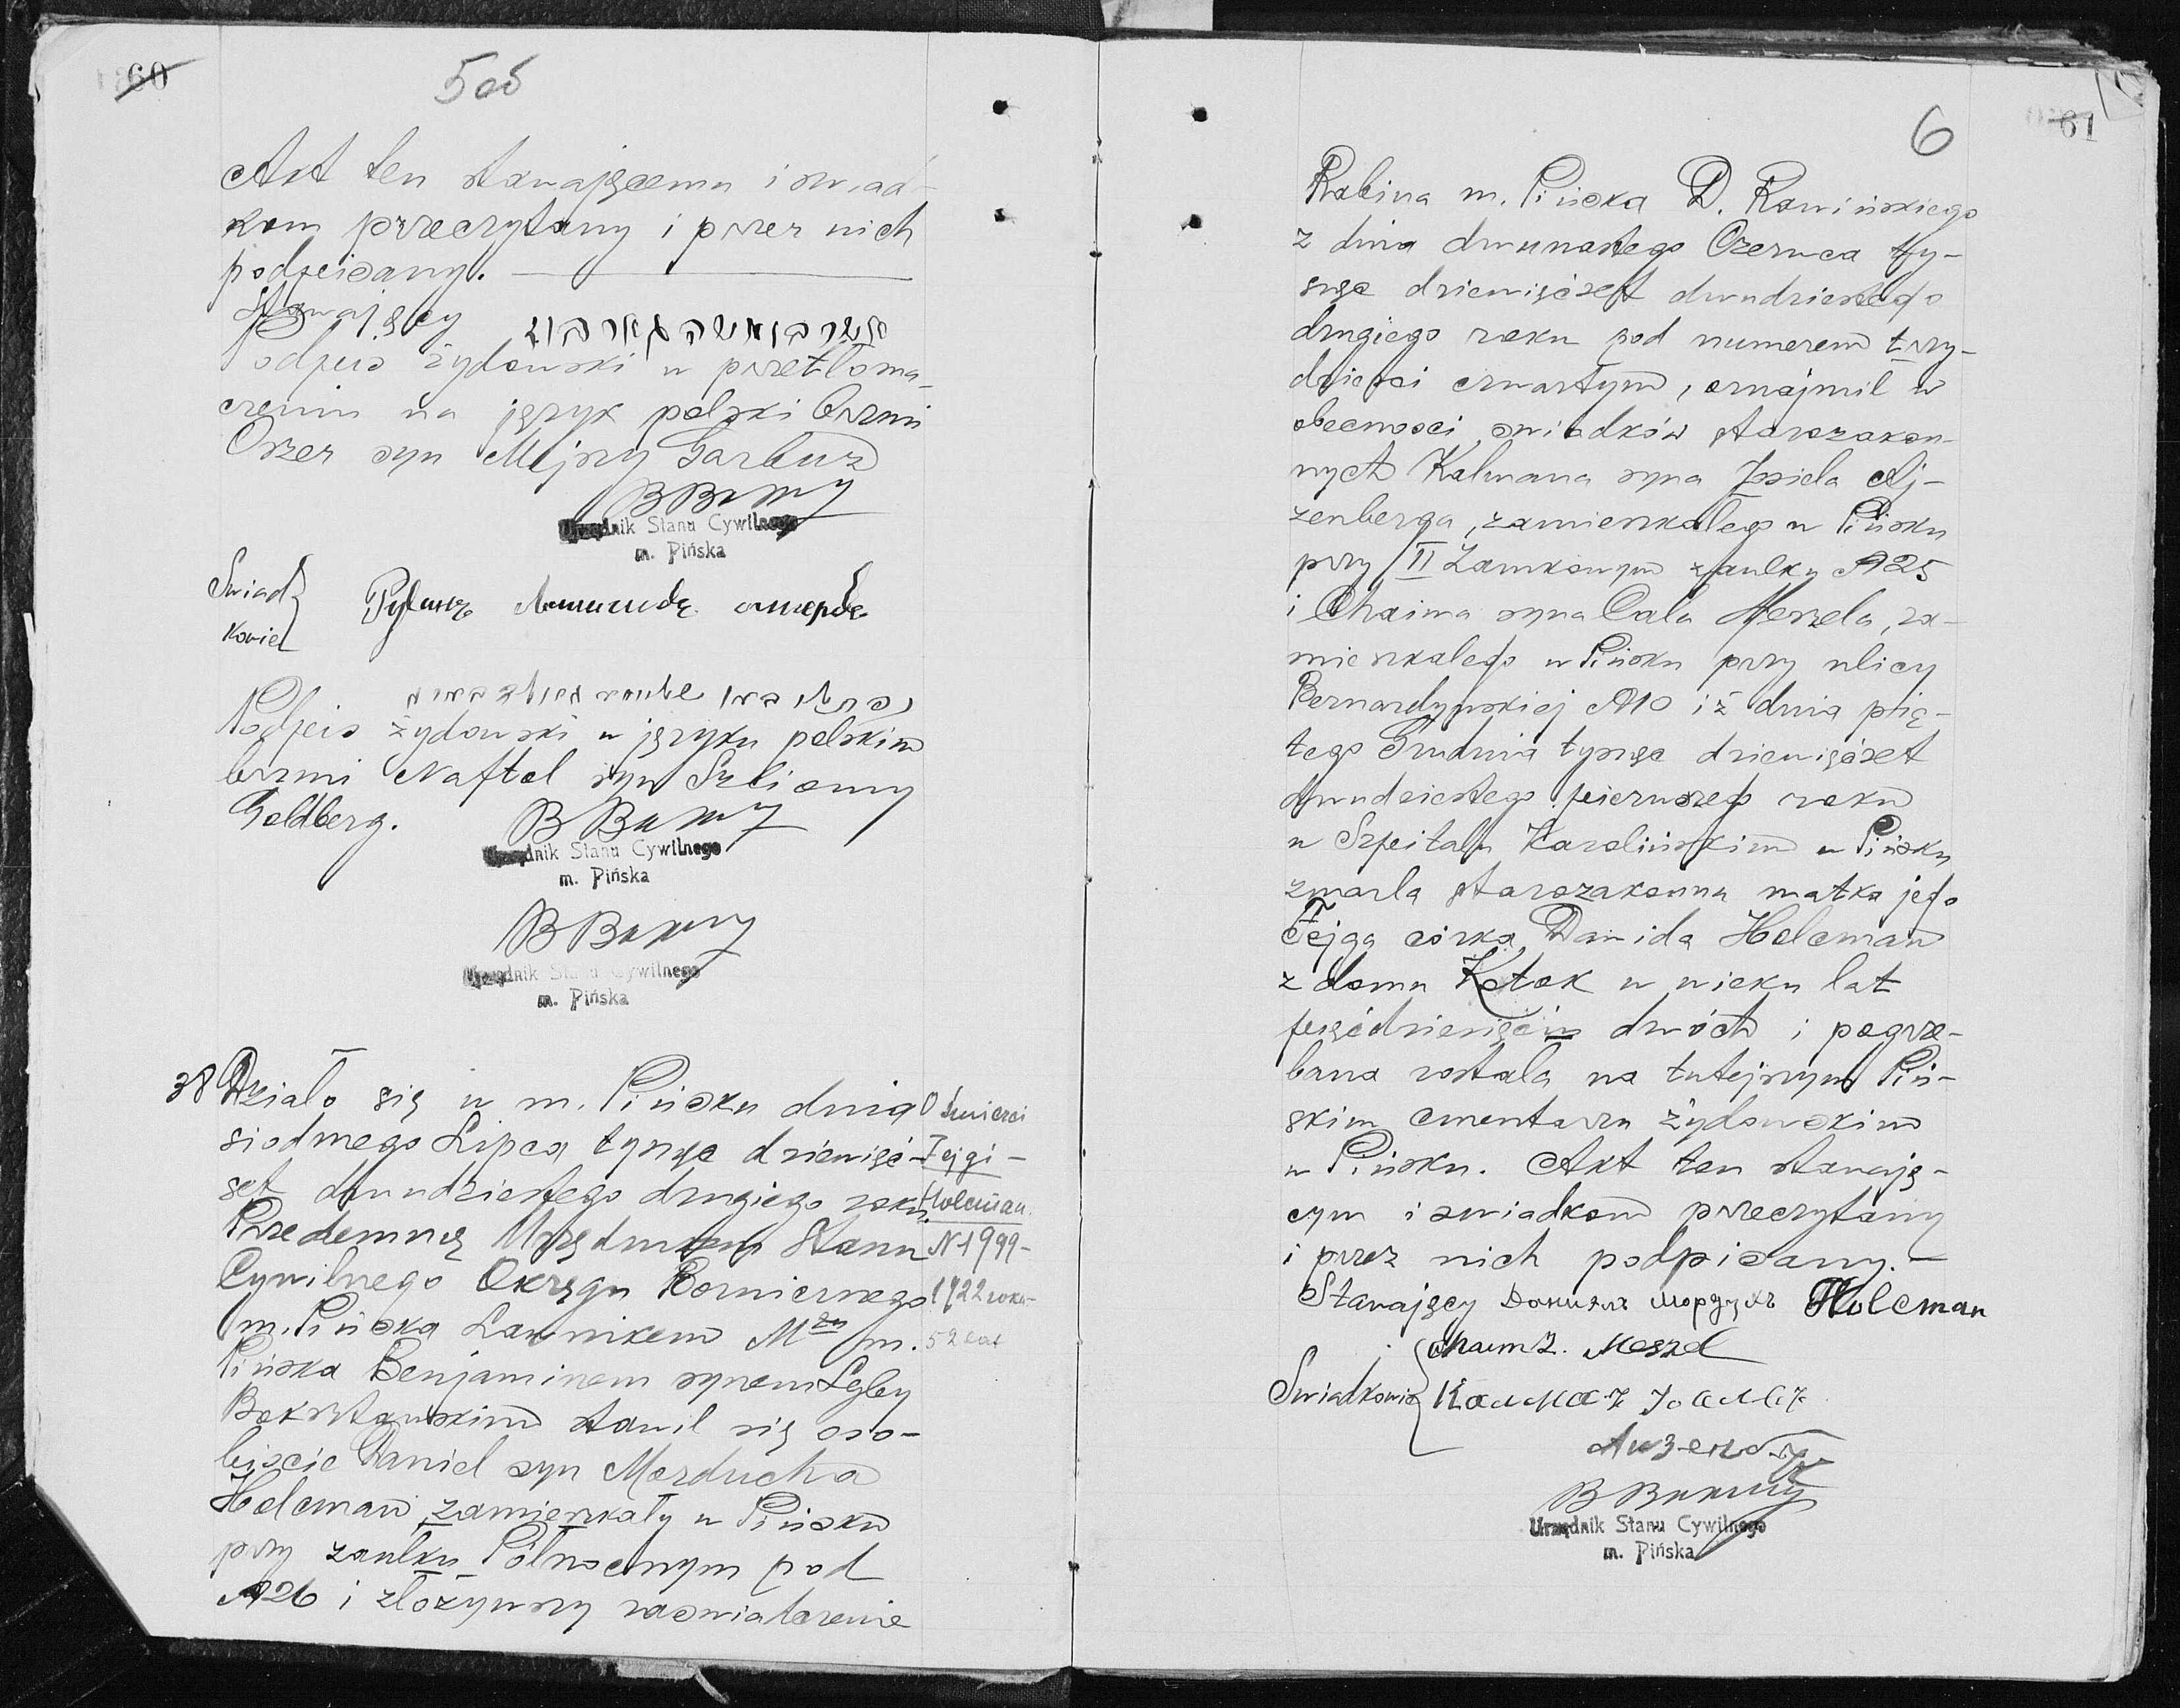 60
5 об
Akt ten stawającemu i świad-
kom przeczytany i przez nich
podpisany.
Stawający
Podpis żydowski w przetłoma-
czeniu na język polski brzmi
Orzer syn Mejszy Garbuz
Urzędnik Stanu Cywilnego
m. Pińska
Świad-
kowie
Podpis żydowski w języku polskim
brzmi Naftel syn Szliomy
Goldberg.
Urzędnik Stanu Cywilnego
m. Pińska
Urzędnik Stanu Cywilnego
m. Pińska
38 Działo się w m. Pińsku dnia
siodmego Lipca tysiąc dziewięć-
set dwudziestego drugiego roku
Przedemną Urzędnikem Stanu
Cywilnego Okręgu Bożniczego
m. Pińska Ławnikem M-tu m.
Pińska Benjaminem synem Lejby
Boksztańskim stawił się oso-
biście Daniel syn Morducha
Holcman zamieszkały w Pińsku
przy zaułku Północnym pod
№26 i złożywszy zaświatczenie
O śmierci
Fejgi -
Holcman.
N 1999-
1922 roku-
52 lat
6
61
Rabina m. Pińska D. Rowińskiego
z dnia dwunastego Czerwca ty-
siąc dziewięćset dwudziestego
drugiego roku pod numerem trzy-
dzieści czwartym, oznajmił w
obecności świadków starozakon-
nych Kalmana syna Josiela Aj-
zenberga, zamieszkałego w Pińsku
przy II Zamkowym zaułku №25
i Chaima syna Cala Meszela, za-
mieszkałego w Pińsku przy ulicy
Bernardyńskiej №10 iż dnia pią-
tego Grudnia tysiąc dziewięćset
dwudziestego pierwszego roku
w Szpitalu Karolińskim w Pińsku
zmarła starozakonna matka jego
Fejga córka Dawida Holcman
z domu Kotok w wieku lat
pięćdziesięciu dwóch i pogrze-
bana została na tutejszym Piń-
skim cmentarzu żydowskim
w Pińsku. Akt ten stawają-
cym i świadkom przeczytany
i przez nich podpisany.-
Stawający Даниэль Мордухъ Holcman
Chaim Z. Meszel
Świadkowie Калман Иосел
Айзенберг
Urzędnik Stanu Cywilnego
m. Pińska